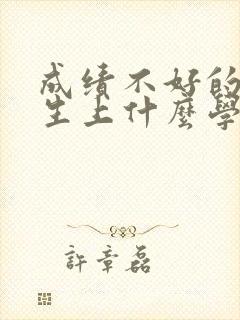 成绩不好的
生上什麼學
許章磊